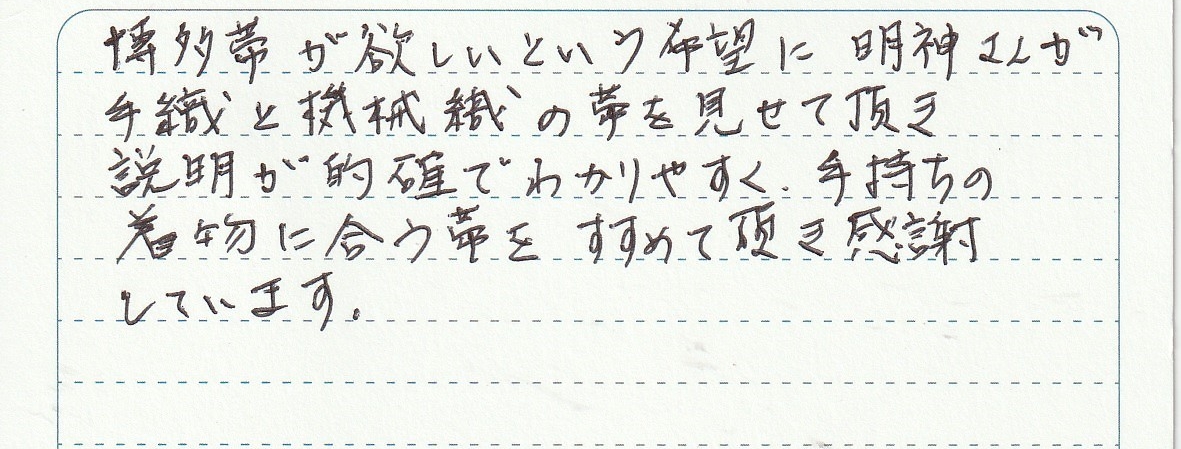 博多帯が欲しいという希望に明神さんが
手織と機械織の帯を見せて頂き
説明が的確でわかりやすく、手持ちの
着物に合う帯をすすめて頂き感謝
しています。